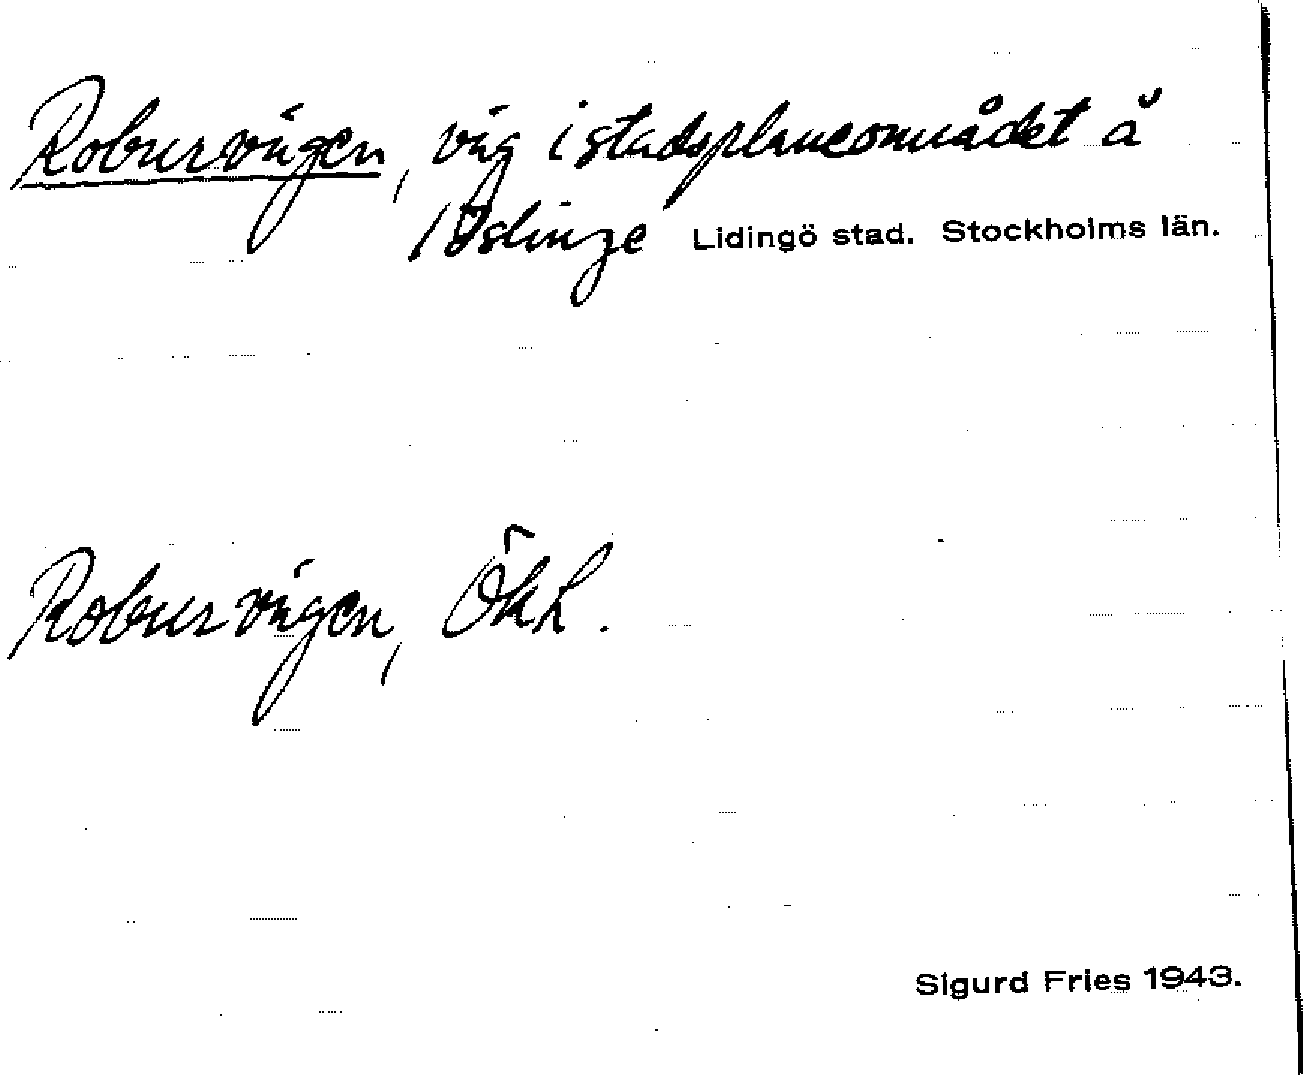 Roburvägen, väg i stadsplaneområdet å
Islinge Lidingö stad. Stockholms län.
Roburvägen,
Sigurd Fries 1943.